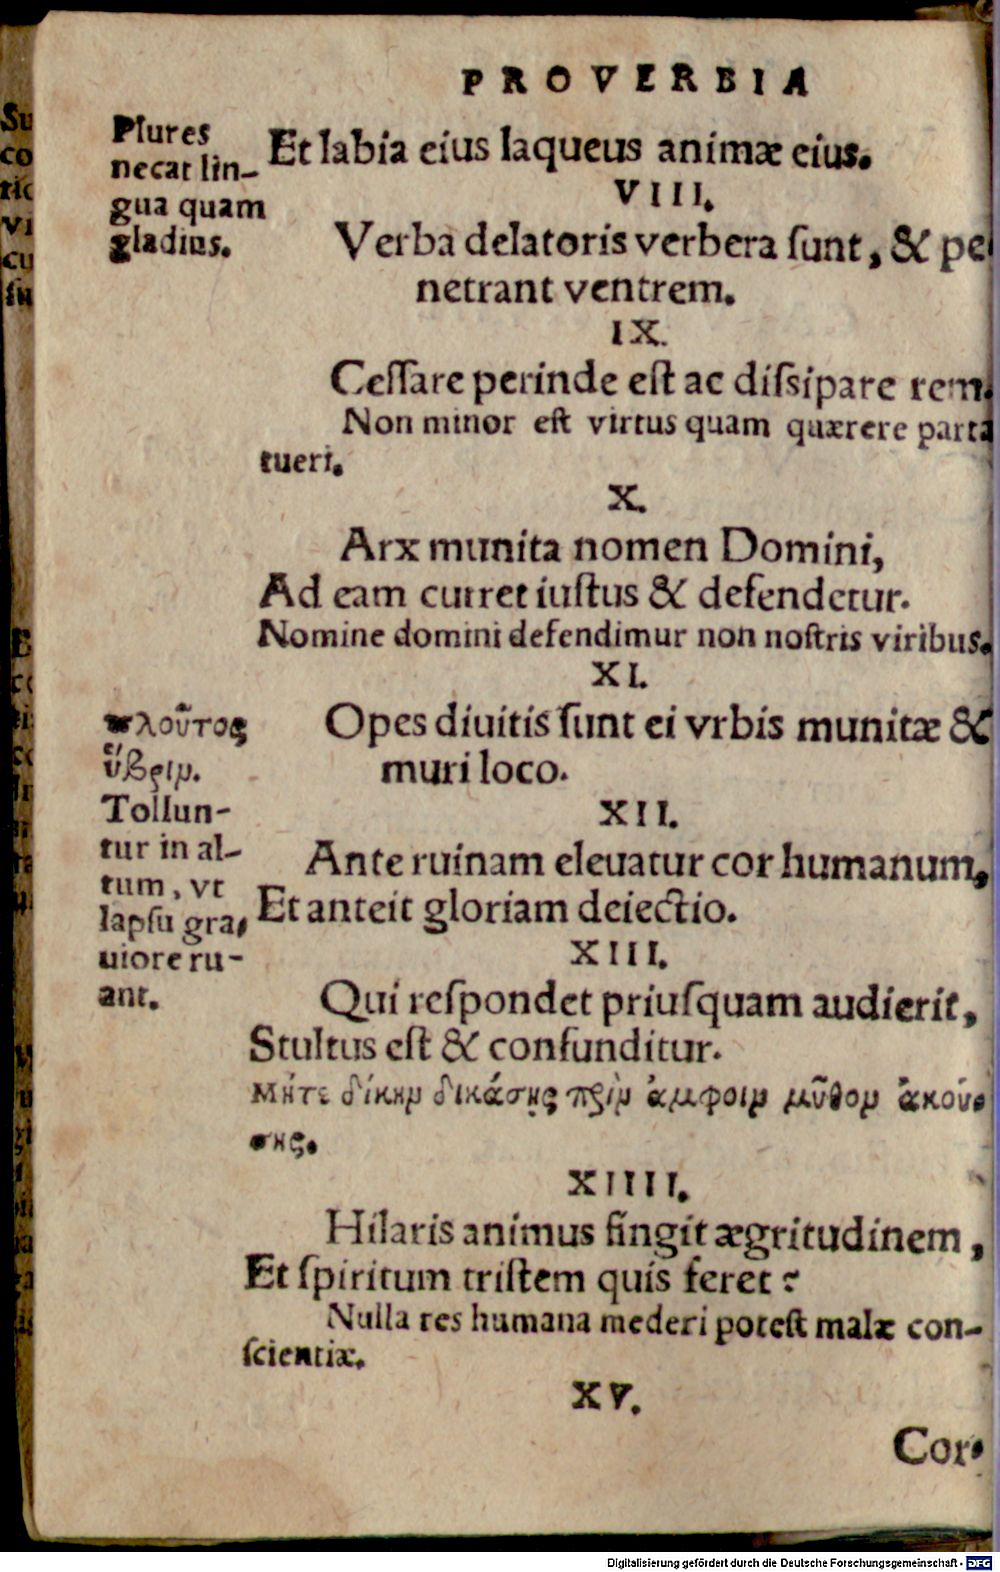 PROVERBIA
Plures
necat lin-
gua quam
gladius.
Et labia eius laqueus animæ eius.
VIII.
Verba delatoris verbera ſunt, & pe
netrant ventrem.
IX.
Ceſſare perinde eſt ac diſsipare rem.
Non minor eſt virtus quam quærere parta
tueri.
X.
Arx munita nomen Domini,
Ad eam curret iuſtus & defendetur.
Nomine domini defendimur non noſtris viribus.
XI.
πλοῦτος
ὕβριμ.
Tollun-
tur in al-
tum, vt
lapſu gra,
uiore ru-
ant.
Opes diuitis ſunt ei vrbis munitæ &
muri loco.
XII.
Ante ruinam eleuatur cor humanum,
Et anteit gloriam deiectio.
XIII.
Qui reſpondet priuſquam audierit,
Stultus eſt & confunditur.
Μήτε δίκην δικάσῃς πρὶν ἀμφοιν μῦθον ἀκού-
σῃς.
XIIII.
Hilaris animus fingit ægritudinem,
Et ſpiritum triſtem quis feret?
Nulla res humana mederi poteſt malæ con-
ſcientiæ.
XV.
Cor-
Digitalisierung gefördert durch die Deutsche Forschungsgemeinschaft - DFG